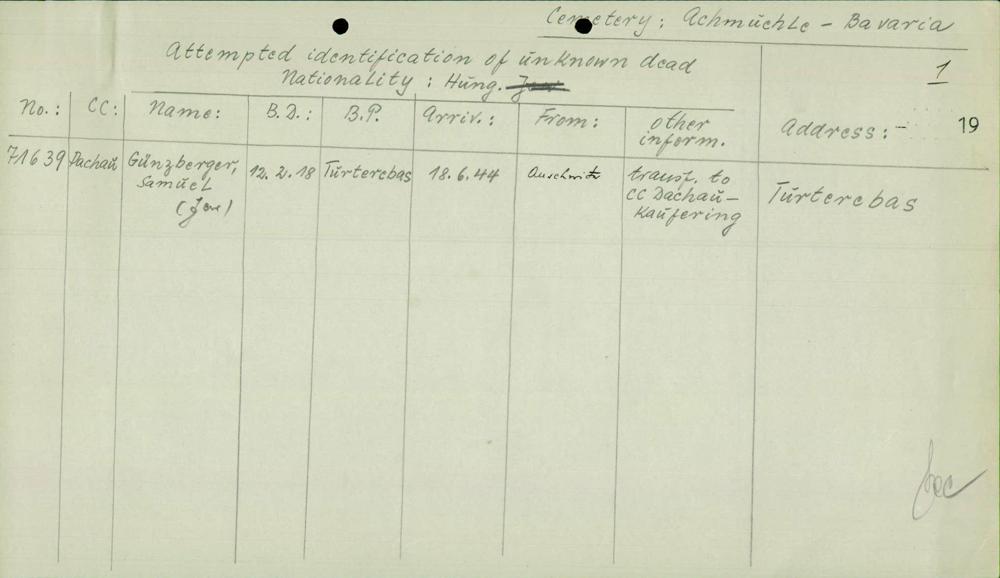 Cemetery: Achmüchle - Bavaria
Attempted identification of unknown dead
Nationality: Hung. Jew
1
No.: CC: Name: B.D.: B.P. Arriv.: From: other inform. Address:- 19
71639 Dachau Günzberger, Samuel (Jew) 12.2.18 Túrterebas 18.6.44 Auschwitz transf. to CC Dachau-Kaufering Túrterebas